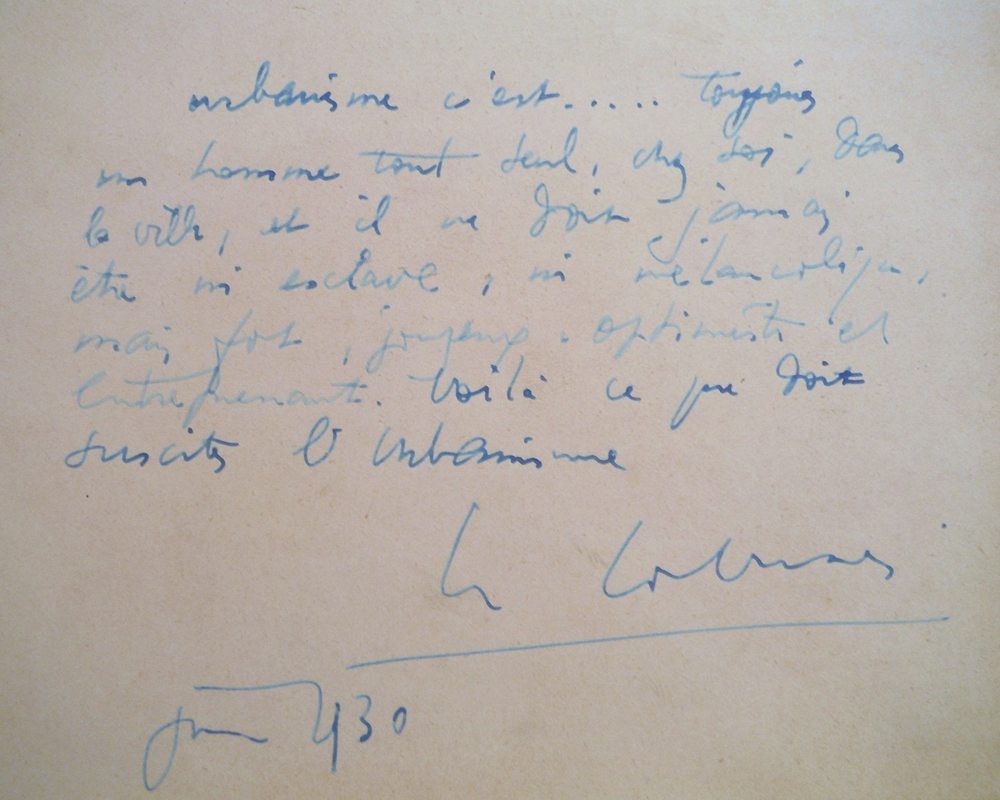 urbanisme c'est..... toujours
un homme tout seul, chez soi, dans
la ville, et il ne doit jamais
être ni esclave, ni mélancolique,
mais fort, joyeux. optimiste et
entreprenant. Voilà ce que doit
susciter l'Urbanisme
Le Corbusier
juin 1930